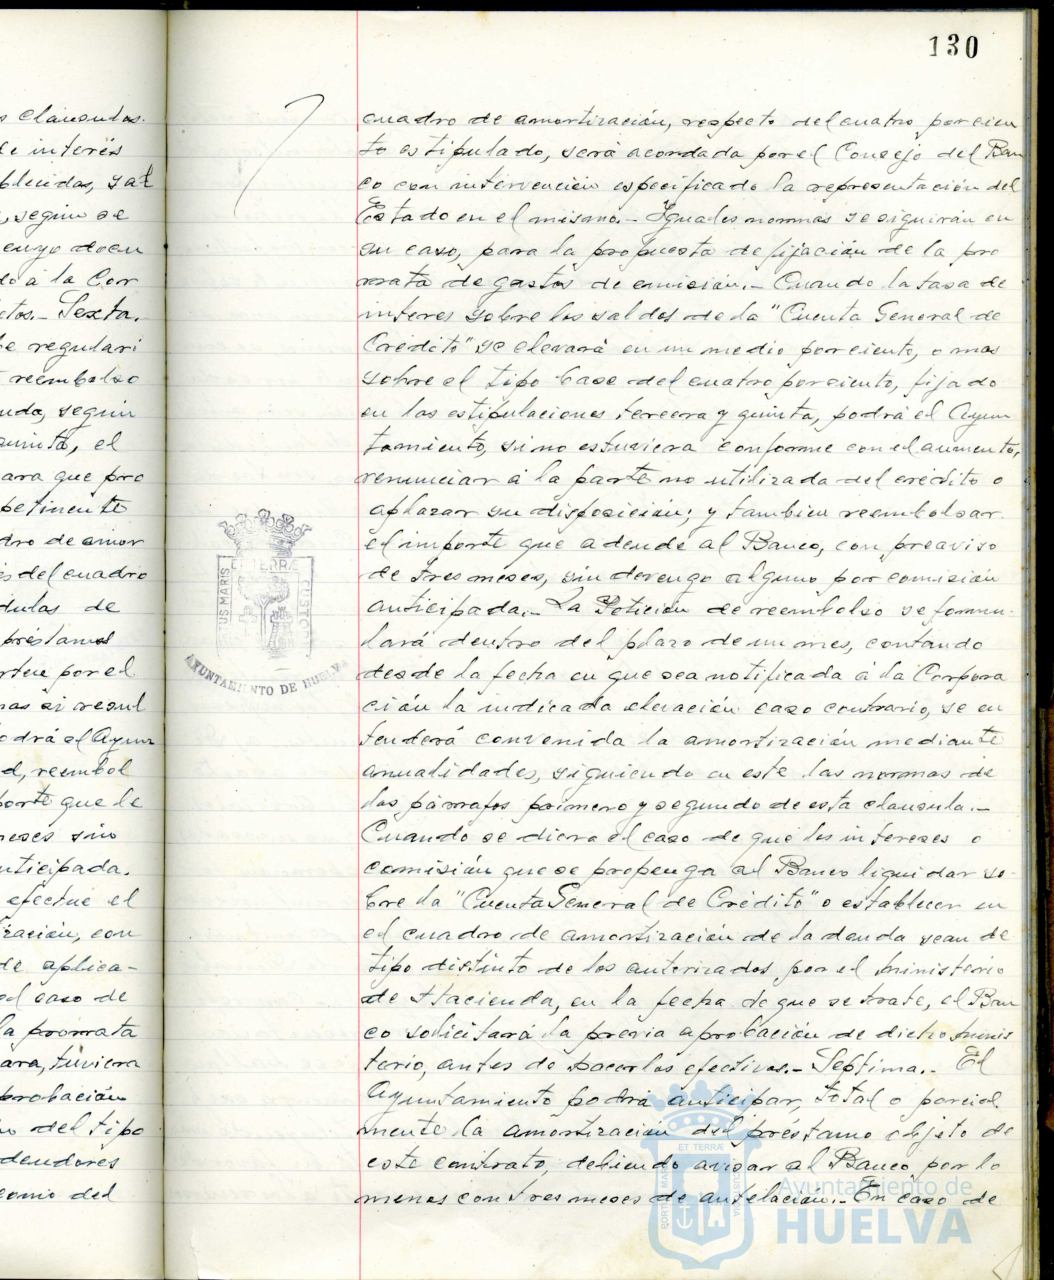 s clausulas.
de interés
blecidas, sal
, según se
cuyo docu
do á la Cor
ctos.- Sexta.
be regulari
reembolso
uda, según
quinta, el
para que pro
petinente
dro de amor
és del cuadro
dulas de
préstamos
por el
mas si resul
odrá el Ayun
d, reembol
porte que le
meses sin
nticipada.
efectue el
zación, con
de aplica-
el caso de
la prorrata
ara, tuviera
probación
del tipo
deudores
como del
130
cuadro de amortización, respecto del cuatro por cien
to estipulado, será acordada por el Consejo del Ban
co con intervención especificado la representación del
Estado en el mismo.- Iguales normas se siguirán en
su caso, para la propuesta de fijación de la pro
rrata de gastos de emisión.- Cuando la tasa de
interes sobre los saldos de la "Cuenta General de
Crédito" se elevará en un medio por ciento, o mas
sobre el tipo base del cuatro por ciento, fijado
en las estipulaciones tercera y quinta, podrá el Ayun
tamiento, si no estuviera conforme con el aumento,
renunciar á la parte no utilizada del crédito o
aplazar su disposición; y tambien reembolsar
el importe que adeude al Banco, con preaviso
de tres meses, sin devengo alguno por comisión
anticipada.- La Petición de reembolso se formu-
lará dentro del plazo de un mes, contando
desde la fecha en que sea notificada á la Corpora
ción la indicada elevación caso contrario, se en
tenderá convenida la amortización mediante
anualidades, siguiendo en este las normas de
los párrafos primero y segundo de esta clausula.-
Cuando se diera el caso de que los intereses o
comisión que se propenga al Banco liquidar so-
bre la "Cuenta General de Crédito" o establecer en
el cuadro de amortización de la deuda sean de
tipo distinto de los autorizados por el Ministerio
de Hacienda, en la fecha de que se trate, el Ban
co solicitará la previa aprobación de dicho Minis
terio, antes de hacerlos efectivos.- Septima.- El
Ayuntamiento podrá anticipar, total o parcial
mente la amortización del préstamo objeto de
este contrato, debiendo avisar al Banco por lo
menos con tres meses de antelación.- En caso de
ET TERRÆ
US MARIS
CUSTODIA
AYUNTAMIENTO DE HUELVA
ET TERRÆ
PORTUS MARIS
CUSTODIA
Ayuntamiento de
HUELVA